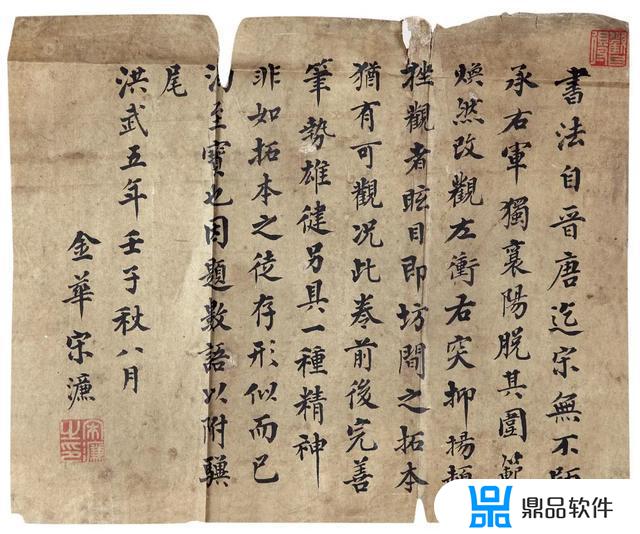 書法自晋唐迄宋無不
承右軍獨襄陽脱其圍範
煥然改觀左衝右突抑揚頓
挫觀者眩目即坊間之拓本
猶有可觀况此卷前後完善
筆勢雄健另具一種精神
非如拓本之徒存形似而已
洵至寶也因題數語以附驥
尾
洪武五年壬子秋八月
金華宋濂
宋濂之印
鼎品软件